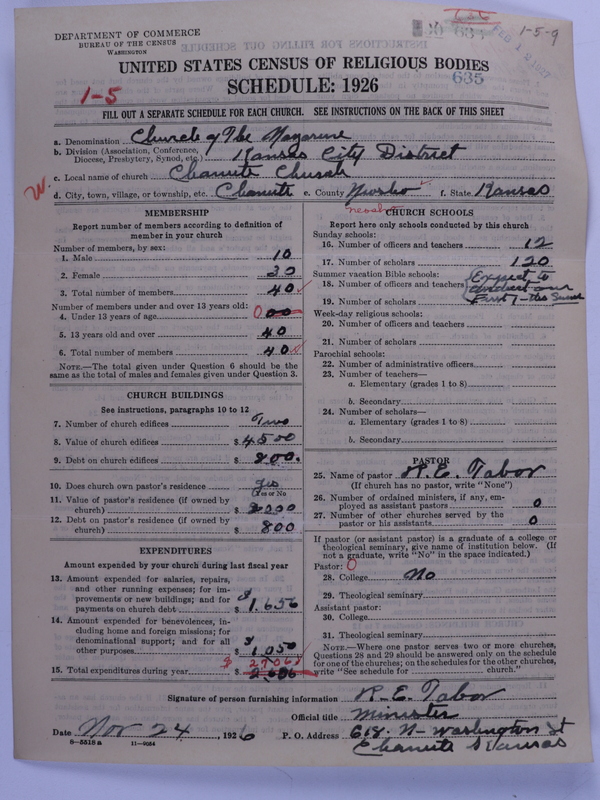 DEPARTMENT OF COMMERCE
BUREAU OF THE CENSUS
WASHINGTON
635
1-5-9
FEB 1 1927
UNITED STATES CENSUS OF RELIGIOUS BODIES
SCHEDULE: 1926
635
1-5
FILL OUT A SEPARATE SCHEDULE FOR EACH CHURCH. SEE INSTRUCTIONS ON THE BACK OF THIS SHEET
a. Denomination Church of The Nazarene
b. Division (Association, Conference, Diocese, Presbytery, Synod, etc.) Kansas City District
c. Local name of church Chanute Church
W.
d. City, town, village, or township, etc. Chanute e. County Neosho f. State Kansas
neosho
MEMBERSHIP
Report number of members according to definition of member in your church
Number of members, by sex:
1. Male 10
2. Female 30
3. Total number of members 40
Number of members under and over 13 years old:
4. Under 13 years of age 0 00
5. 13 years old and over 40
6. Total number of members 40
NOTE.—The total given under Question 6 should be the same as the total of males and females given under Question 3.
CHURCH BUILDINGS
See instructions, paragraphs 10 to 12
7. Number of church edifices Two
8. Value of church edifices $ 4500
9. Debt on church edifices $ 800.
10. Does church own pastor's residence yes
(Yes or No)
11. Value of pastor's residence (if owned by church) $ 2200
12. Debt on pastor's residence (if owned by church) $ 800
EXPENDITURES
Amount expended by your church during last fiscal year
13. Amount expended for salaries, repairs, and other running expenses; for improvements or new buildings; and for payments on church debt $ 1.656
14. Amount expended for benevolences, including home and foreign missions; for denominational support; and for all other purposes $ 1,050
$ 2706
15. Total expenditures during year $ 2.606
CHURCH SCHOOLS
Report here only schools conducted by this church
Sunday schools:
16. Number of officers and teachers 12
17. Number of scholars 120
Summer vacation Bible schools:
18. Number of officers and teachers
19. Number of scholars
Expect to conduct our First
Week-day religious schools:
20. Number of officers and teachers
21. Number of scholars
Parochial schools:
22. Number of administrative officers
23. Number of teachers—
a. Elementary (grades 1 to 8)
b. Secondary
24. Number of scholars—
a. Elementary (grades 1 to 8)
b. Secondary
PASTOR
25. Name of pastor R. E. Tabor
(If church has no pastor, write "None")
26. Number of ordained ministers, if any, employed as assistant pastors 0
27. Number of other churches served by the pastor or his assistants 0
If pastor (or assistant pastor) is a graduate of a college or theological seminary, give name of institution below. (If not a graduate, write "No" in the space indicated.)
Pastor: 0
28. College No
29. Theological seminary
Assistant pastor:
30. College
31. Theological seminary
NOTE.—Where one pastor serves two or more churches, Questions 28 and 29 should be answered only on the schedule for one of the churches; on the schedules for the other churches, write "See schedule for church."
Signature of person furnishing information R. E. Tabor
Official title Minister
Date Nov 24, 1926 P. O. Address 618. N- Washington St
Chanute Kansas
8—5518a 11—9084